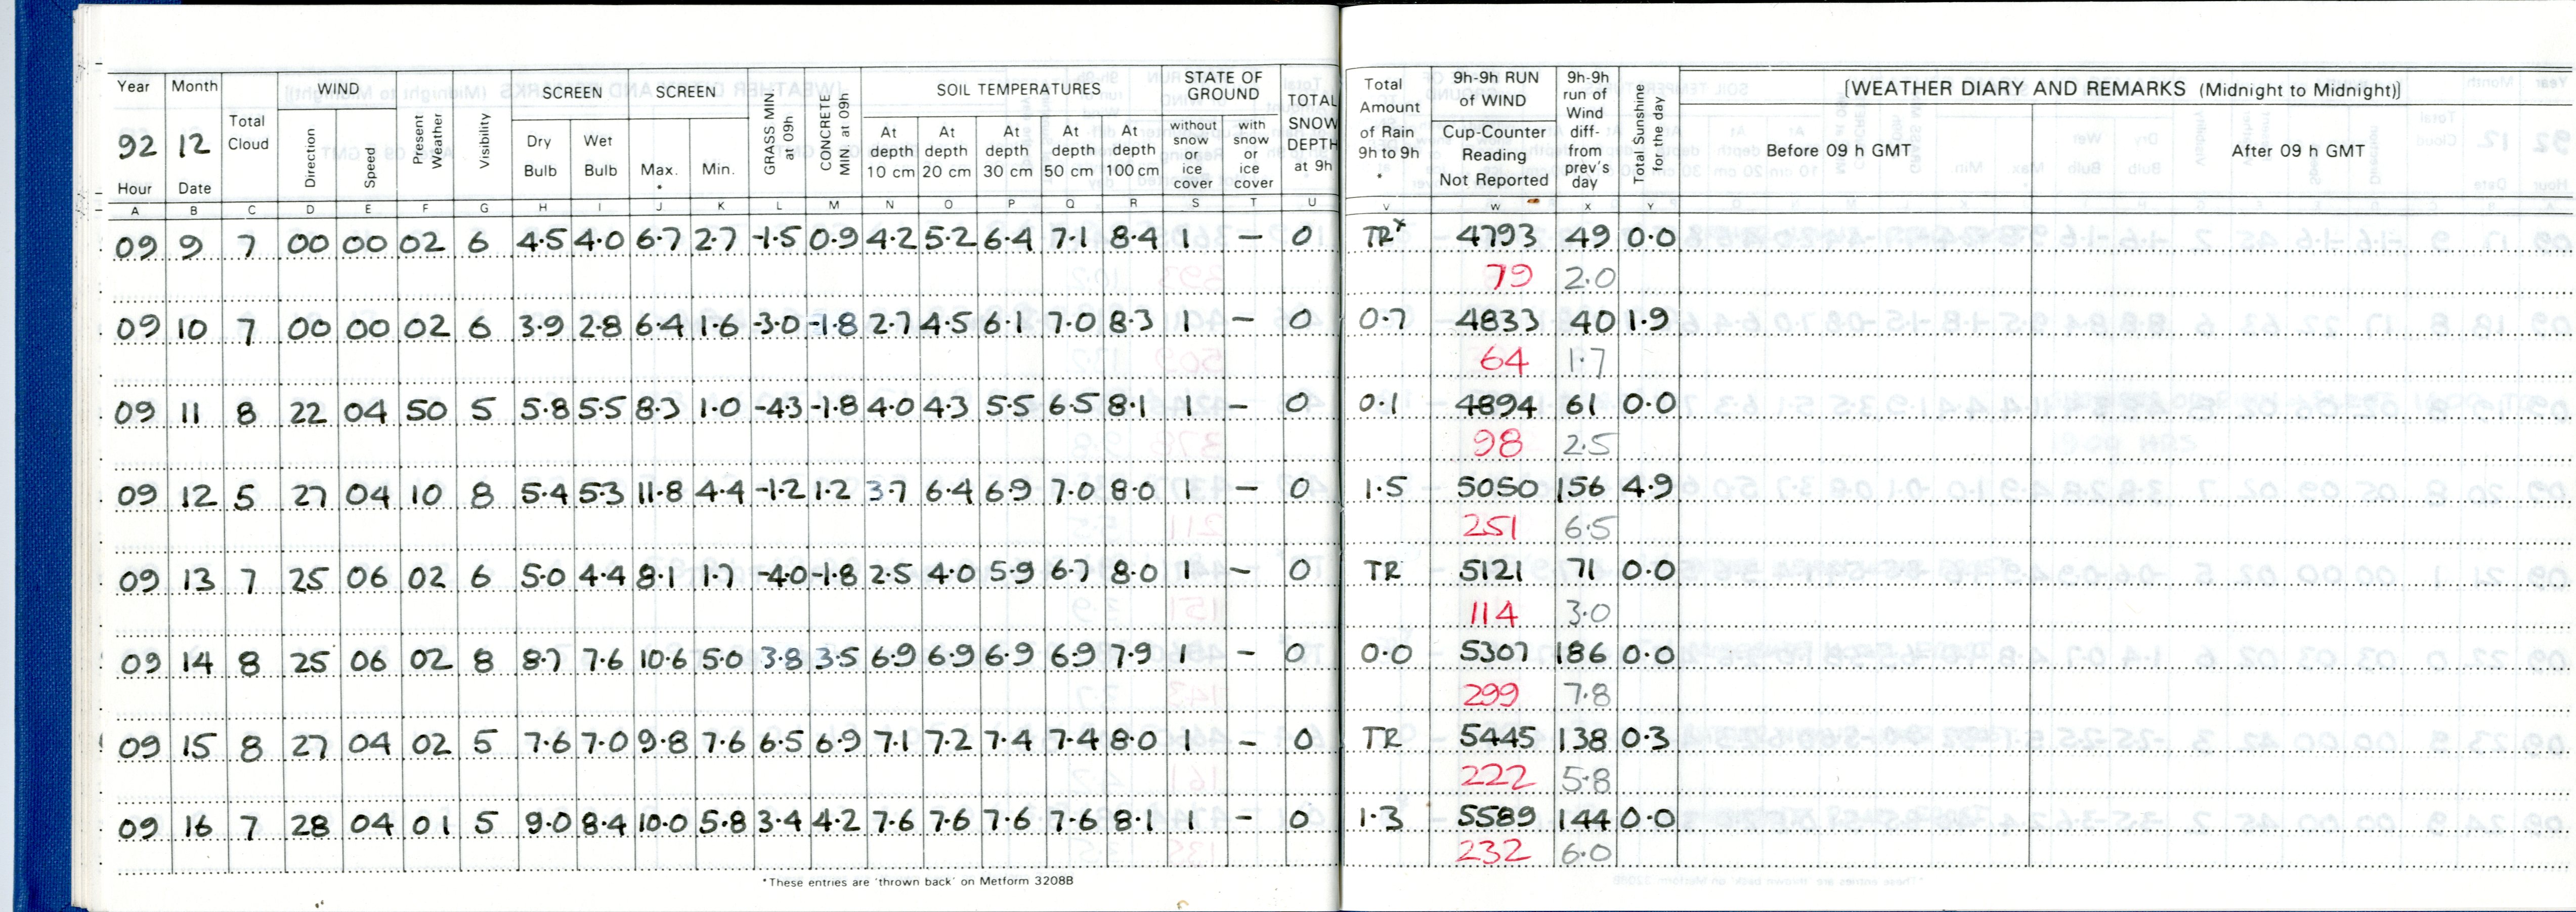 Year Month Total Cloud WIND Present Weather Visibility SCREEN SCREEN GRASS MIN at 09h CONCRETE MIN at 09h SOIL TEMPERATURES STATE OF GROUND TOTAL SNOW DEPTH at 9h Total Amount of Rain 9h to 9h * 9h-9h RUN of WIND 9h-9h run of Wind diff- from prev's day Total Sunshine for the day [WEATHER DIARY AND REMARKS (Midnight to Midnight)]
92 12 Direction Speed Dry Bulb Wet Bulb Max. * Min. At depth 10 cm At depth 20 cm At depth 30 cm At depth 50 cm At depth 100 cm without snow or ice cover with snow or ice cover Cup-Counter Reading Not Reported Before 09 h GMT After 09 h GMT
Hour Date
A B C D E F G H I J K L M N O P Q R S T U V W X Y
09 9 7 00 00 02 6 4.5 4.0 6.7 2.7 -1.5 0.9 4.2 5.2 6.4 7.1 8.4 1 — 0 TR* 4793 49 0.0
79 2.0
09 10 7 00 00 02 6 3.9 2.8 6.4 1.6 -3.0 -1.8 2.7 4.5 6.1 7.0 8.3 1 — 0 0.7 4833 40 1.9
64 1.7
09 11 8 22 04 50 5 5.8 5.5 8.3 1.0 -4.3 -1.8 4.0 4.3 5.5 6.5 8.1 1 — 0 0.1 4894 61 0.0
98 2.5
09 12 5 27 04 10 8 5.4 5.3 11.8 4.4 -1.2 1.2 3.7 6.4 6.9 7.0 8.0 1 — 0 1.5 5050 156 4.9
251 6.5
09 13 7 25 06 02 6 5.0 4.4 8.1 1.7 -4.0 -1.8 2.5 4.0 5.9 6.7 8.0 1 — 0 TR 5121 71 0.0
114 3.0
09 14 8 25 06 02 8 8.7 7.6 10.6 5.0 3.8 3.5 6.9 6.9 6.9 6.9 7.9 1 — 0 0.0 5307 186 0.0
299 7.8
09 15 8 27 04 02 5 7.6 7.0 9.8 7.6 6.5 6.9 7.1 7.2 7.4 7.4 8.0 1 — 0 TR 5445 138 0.3
222 5.8
09 16 7 28 04 01 5 9.0 8.4 10.0 5.8 3.4 4.2 7.6 7.6 7.6 7.6 8.1 1 — 0 1.3 5589 144 0.0
232 6.0
*These entries are 'thrown back' on Metform 3208B